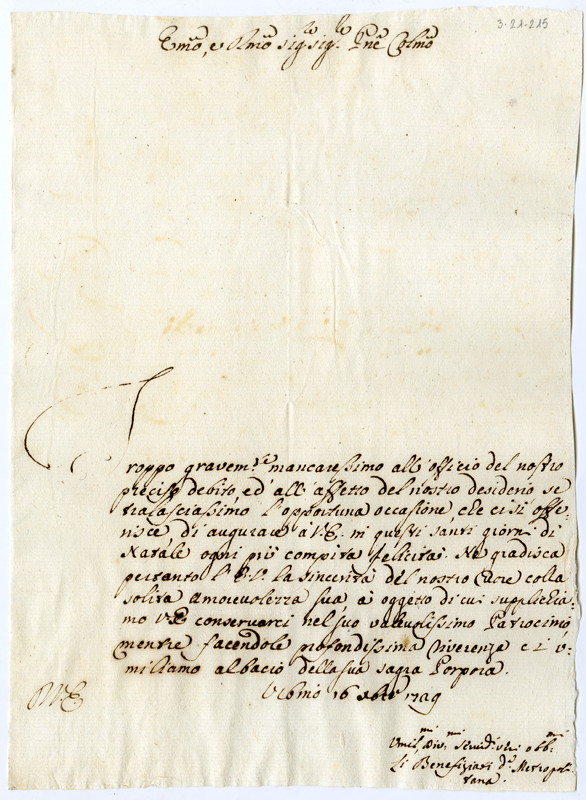 3-21-215
Emo, e Rmo Sig. Sig. Pne Colmo
Troppo gravem.te mancaressimo all'officio del nostro
preciso debito, ed all'affetto del nostro desiderio se
tralasciassimo l'opportuna occasione, che ci si offe=
risce, di augurare à V.E. in questi santi giorni di
Natale ogni più compita felicità. Ne gradisca
pertanto l'E.V. la sincerità del nostro Cuore colla
solita amorevolezza sua, à oggetto di cui supplichia=
mo V.E. conservarci nel suo valevolissimo Patrocinio
mentre facendole profondissima riverenza ci u=
miliamo al bacio della sua sagra Porpora.
Urbino 16 Xbre 1729
V.E.
Umil.mi Div.mi Servid.ri obb.mi
Li Benefiziati d.a Metropoli=
tana.